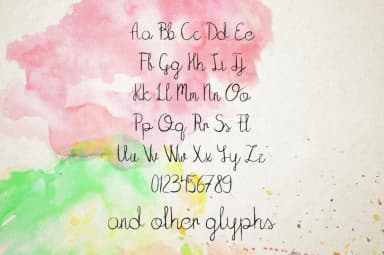 Aa Bb Cc Dd Ee
Ff Gg Hh Ii Jj
Kk Ll Mm Nn Oo
Pp Qq Rr Ss Tt
Uu Vv Ww Xx Yy Zz
0123456789
and other glyphs